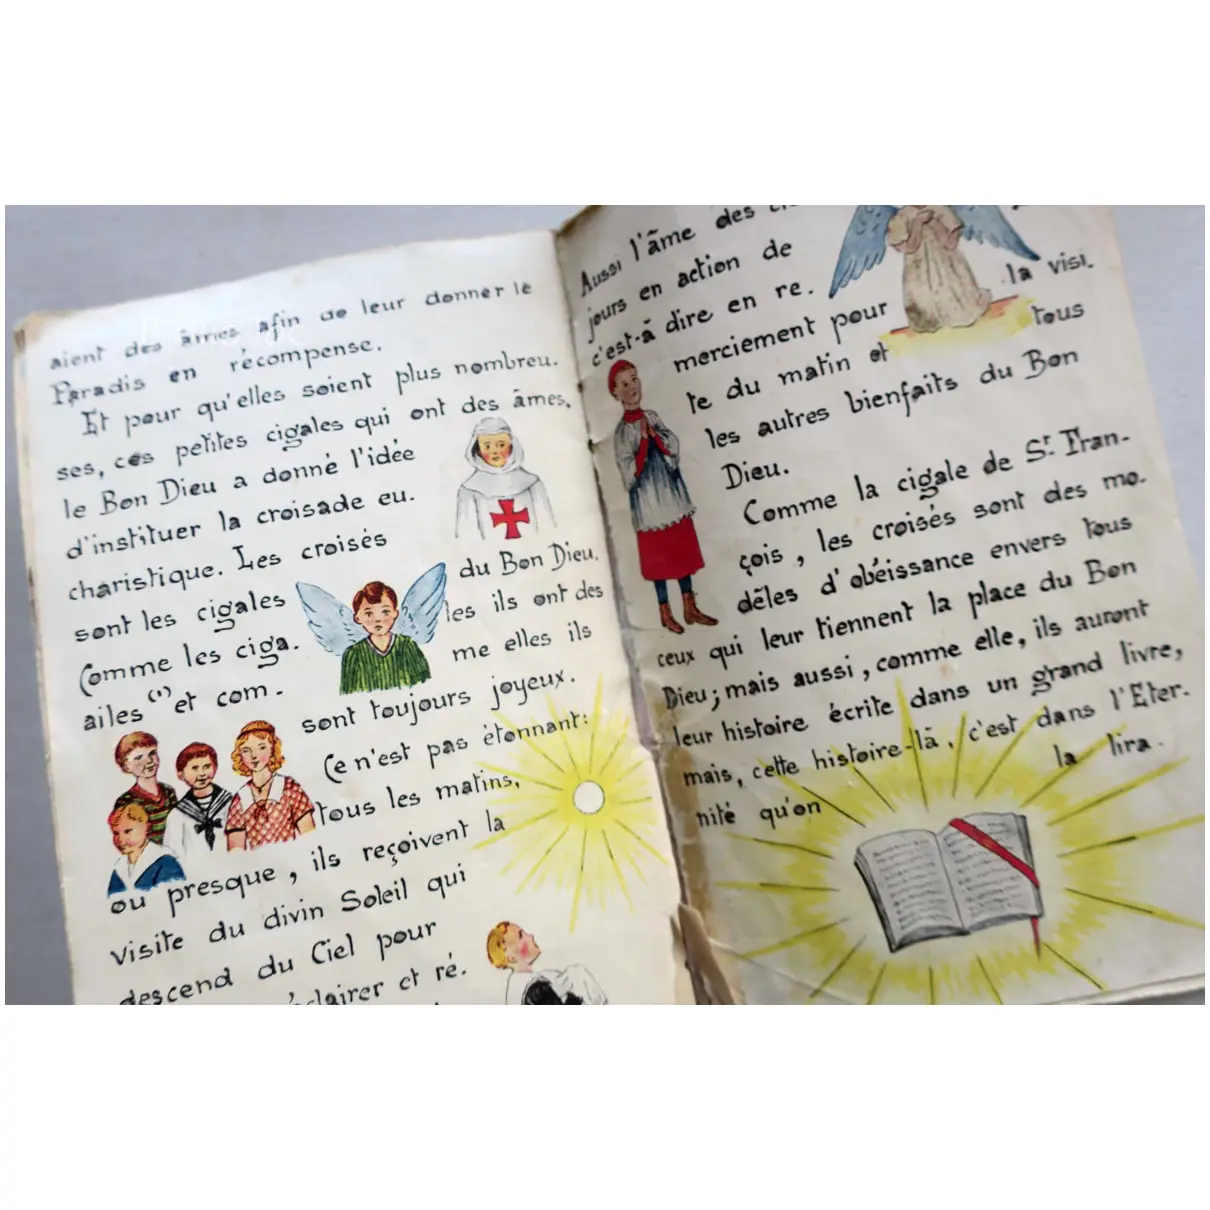 aient des âmes afin de leur donner le
Paradis en récompense.
Et pour qu'elles soient plus nombreu.
ses, ces petites cigales qui ont des âmes,
le Bon Dieu a donné l'idée
d'instituer la croisade eu.
charistique. Les croisés
sont les cigales du Bon Dieu.
Comme les ciga. les ils ont des
ailes (1) et com- me elles ils
sont toujours joyeux.
Ce n'est pas étonnant:
tous les matins,
ou presque, ils reçoivent la
visite du divin Soleil qui
descend du Ciel pour
éclairer et ré.
Aussi l'âme des
jours en action de
c'est-à dire en re.
merciement pour la visi.
te du matin et tous
les autres bienfaits du Bon
Dieu.
Comme la cigale de St Fran-
çois, les croisés sont des mo.
dèles d'obéissance envers tous
ceux qui leur tiennent la place du Bon
Dieu; mais aussi, comme elle, ils auront
leur histoire écrite dans un grand livre,
mais, cette histoire-là, c'est dans l'Eter-
nité qu'on la lira.